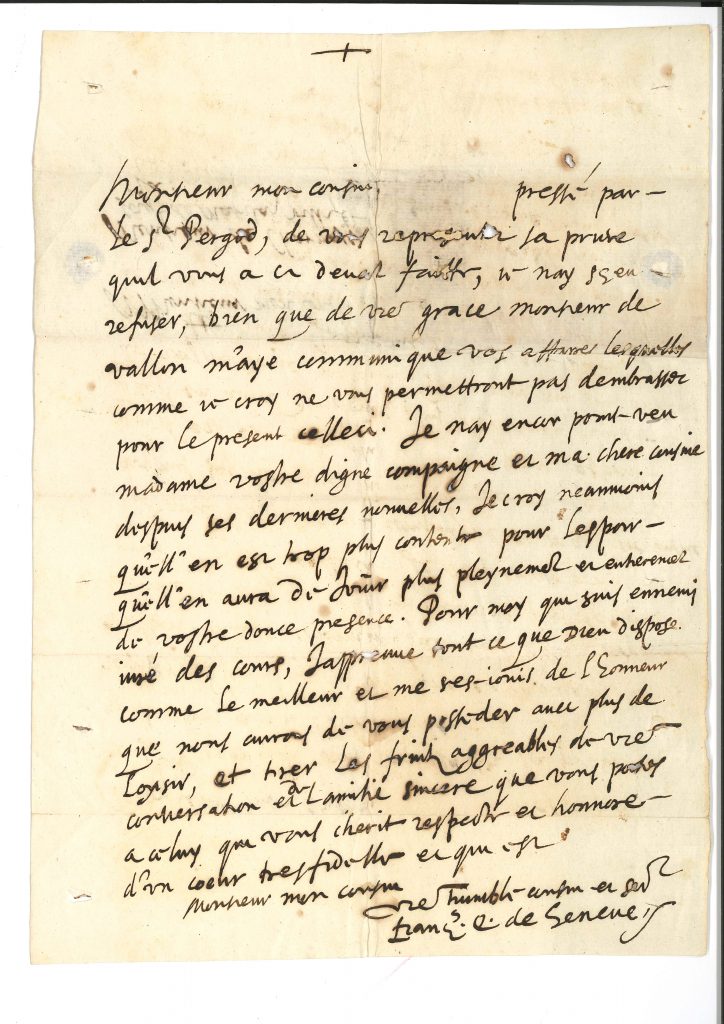 Monsieur mon cousin, pressé par
le Sr Pergod, de vous representer sa
quil vous a ci devat faitte, ie nay sceu
refuser, bien que de vre grace monsieur de
vallon m'aye communique vos affaires lesquelles
comme ie croy ne vous permettront pas dembrasser
pour le present celleci. Je nay encor point veu
madame vostre digne compaigne et ma chere cousine
despuis ses dernieres nouvelles, Je croy neanmoins
qu'ell'en est trop plus contente pour lespoir
qu'ell'en aura de Jouir plus pleynement et entierement
de vostre douce presence. Pour moy qui suis ennemi
iuré des cours, Jappreuve tout ce que Dieu dispose
comme le meilleur et me res-iouis de l'honneur
que nous aurons de vous posseder avec plus de
loysir, et tirer les fruitz aggreables de vre
conversation et de l'amitie sincere que vous portes
a celuy qui vous cherit respecte et honnore
d'un coeur tresfidelle et qui est
Monsieur mon cousin
Vre humble cousin et ser
Franç. E. de Geneve